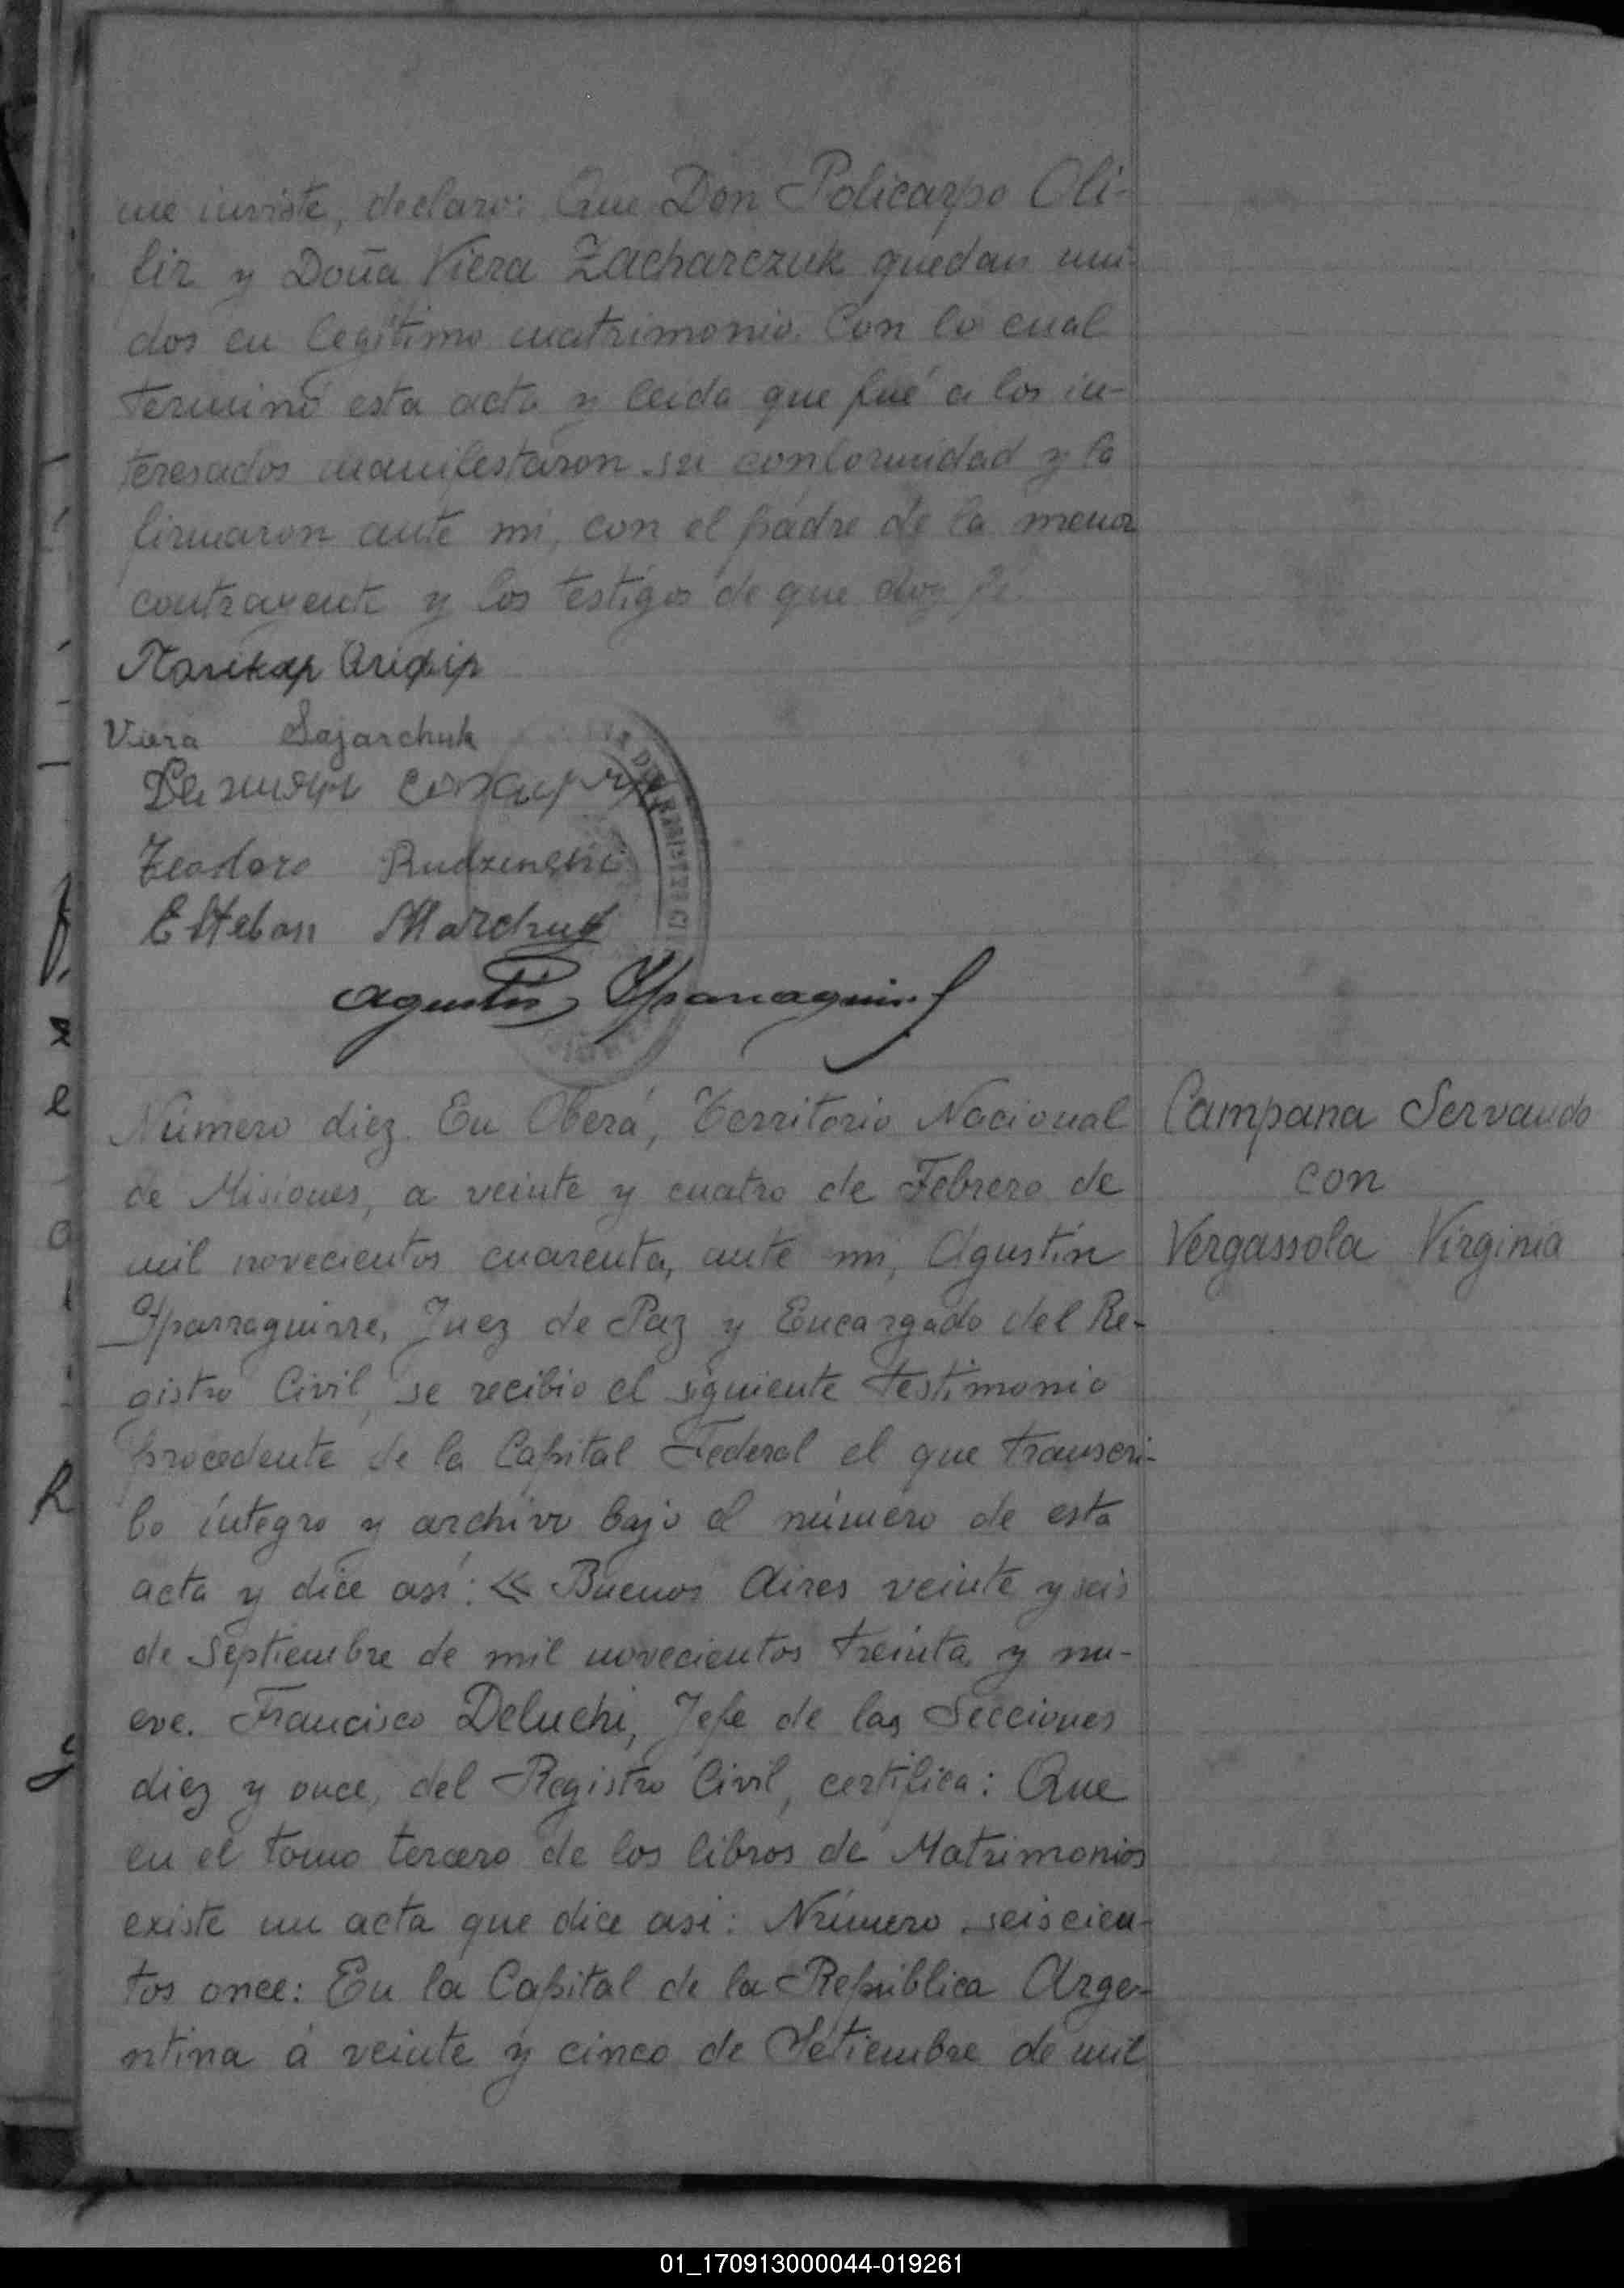 me inviste, declaro: Que Don Policarpo Oli-
fir y Doña Viera Zacharczuk quedan uni-
dos en legítimo matrimonio. Con lo cual
terminó esta acta y leida que fué a los in-
teresados manifestaron su conformidad y la
firmaron ante mi, con el padre de la menor
contrayente y los testigos de que doy fé.
Viera Sajarchuk
Teodoro Rudzinski
Esteban Marchuk
Agustín Yparraguirre
Número diez. En Oberá, Territorio Nacional
de Misiones, a veinte y cuatro de Febrero de
mil novecientos cuarenta, ante mi, Agustín
Yparraguirre, Juez de Paz y Encargado del Re-
gistro Civil, se recibio el siguiente testimonio
procedente de la Capital Federal el que transcri-
bo íntegro y archivo bajo el número de esta
acta y dice así: « Buenos Aires veinte y seis
de Septiembre de mil novecientos treinta y nu-
eve. Francisco Deluchi, Jefe de las Secciones
diez y once, del Registro Civil, certifica: Que
en el tomo tercero de los libros de Matrimonios
existe un acta que dice asi: Número seiscien-
tos once: En la Capital de la República Arge-
ntina á veinte y cinco de Setiembre de mil
Campana Servando
con
Vergassola Virginia
01_170913000044-019261